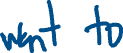 want to